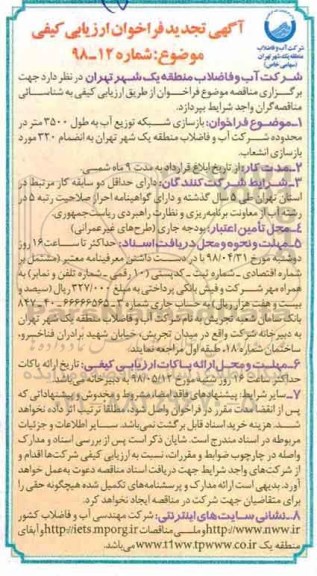 آگهی تجدید فراخوان ارزیابی کیفی
موضوع: شماره ۱۲-۹۸
شرکت آب و فاضلاب
منطقه یک شهر تهران
(سهامی خاص)
شرکت آب و فاضلاب منطقه یک شهر تهران در نظر دارد جهت
برگزاری مناقصه موضوع فراخوان از طریق ارزیابی کیفی به شناسائی
مناقصه گران واجد شرایط بپردازد.
۱-موضوع فراخوان: بازسازی شبکه توزیع آب به طول ۳۵۰۰ متر در
محدوده شرکت آب و فاضلاب منطقه یک شهر تهران به انضمام ۳۲۰ مورد
بازسازی انشعاب.
۲-مدت کار: از تاریخ ابلاغ قرارداد به مدت ۹ ماه شمسی
۳-شرایط شرکت کنندگان: دارای حداقل دو سابقه کار مرتبط در
استان تهران طی ۵ سال گذشته و دارای گواهینامه احراز صلاحیت رتبه ۵ در
رشته آب از معاونت برنامه ریزی و نظارت راهبردی ریاست جمهوری.
۴-محل تأمین اعتبار: بودجه جاری (طرح های غیرعمرانی)
۵-مهلت و نحوه و محل دریافت اسناد: حداکثر تا ساعت ۱۶ روز
دوشنبه مورخ ۹۸/۰۴/۳۱ با در دست داشتن معرفینامه معتبر (مشتمل بر
شماره اقتصادی - شماره ثبت - کدپستی (۱۰ رقمی - شماره تلفن و نمابر) به
همراه مهر شرکت و فیش بانکی پرداختی به مبلغ ۳۲۷/۰۰۰ ریال (سیصد و
بیست و هفت هزار ریال) به حساب جاری شماره
بانک سامان شعبه تجریش به نام شرکت آب و فاضلاب منطقه یک شهر تهران
به دبیرخانه شرکت واقع در میدان تجریش، خیابان شهید برادران فناخسرو،
ساختمان شماره ۱۸، طبقه اول مراجعه نمایند.
۶-مهلت و محل ارائه پاکات ارزیابی کیفی: تاریخ ارائه پاکات
حداکثر ساعت ۱۶ روز شنبه مورخ ۹۸/۰۵/۱۲ به دبیرخانه می باشد.
۷-سایر شرایط: پیشنهادهای فاقد مشروط و مخدوش و پیشنهاداتی که
پس از انقضاء مدت مقرر در فراخوان واصل شود مطلقا ترتیب اثر داده نخواهد
شد. هزینه خرید اسناد قابل برگشت نمی باشد. سایر اطلاعات و جزئیات
مربوطه در اسناد مندرج است. شایان ذکر است پس از بررسی اسناد و مدارک
واصله در چارچوب ضوابط و مقررات، نسبت به ارزیابی کیفی شرکت ها اقدام و
از شرکت های واجد شرایط جهت دریافت اسناد مناقصه دعوت به عمل خواهد
آورد. بدیهی است ارائه مدارک و پرسشنامه های تکمیل شده هیچگونه حقی را
برای متقاضیان جهت شرکت در مناقصه ایجاد نخواهد کرد.
۸-نشانی سایت های اینترنتی: شرکت مهندسی آب و فاضلاب کشور
http://www.nww.ir و ملی مناقصات http://iets.mporg.ir و آبفای
منطقه یک www.t1ww.tpww.co.ir می باشد.